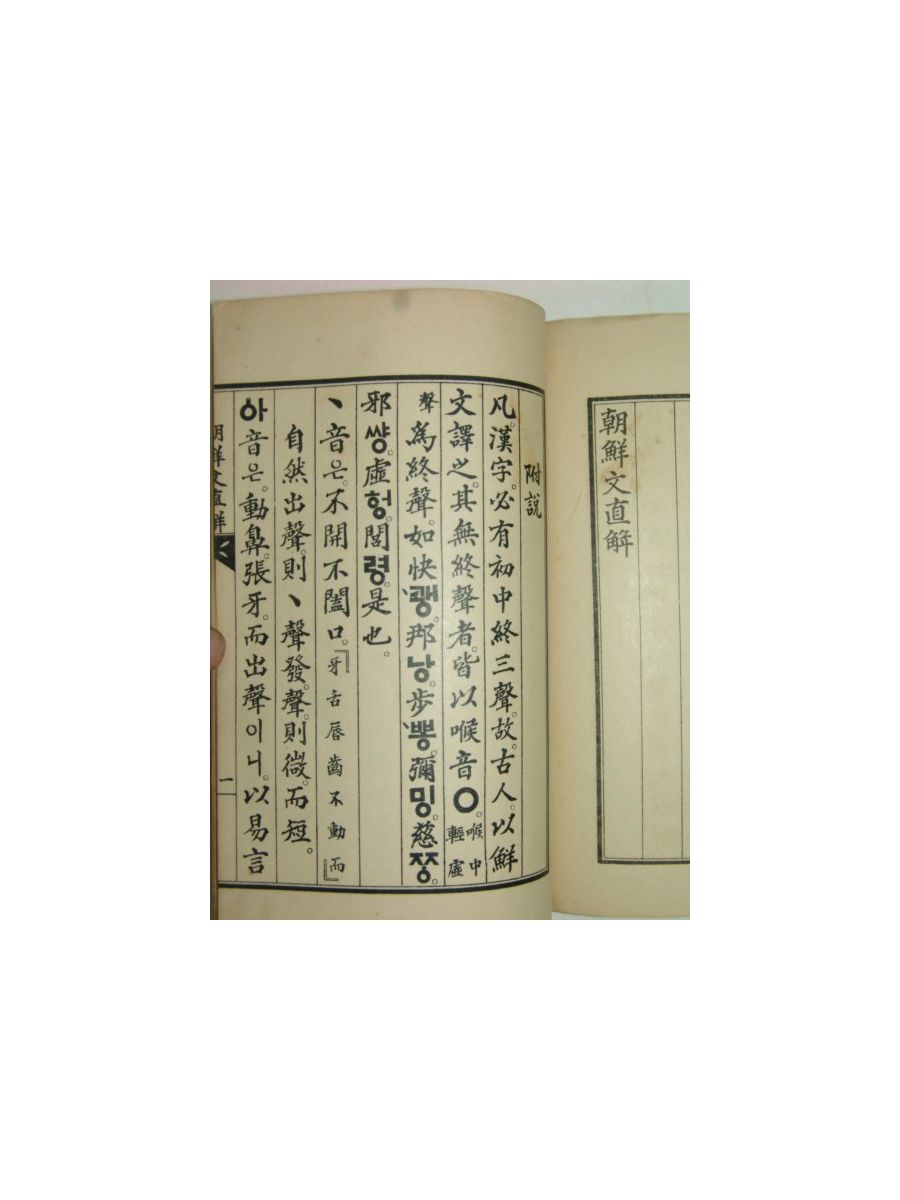 朝鮮文直解
附說
凡漢字。必有初中終三聲。故古人。以鮮
文譯之。其無終聲者。皆以喉音ㅇ。喉中輕虛
聲爲終聲。如快쾡。那낭。步뽕。彌밍。慈ᄍᆞᆼ。
邪썅。虛헝。閭령。是也。
丶音은。不開不闔口。『牙舌唇齒不動而』
自然出聲。則丶聲發。聲則微。而短。
아音은。動鼻。張牙。而出聲이니。以易言
朝鮮文直解
一